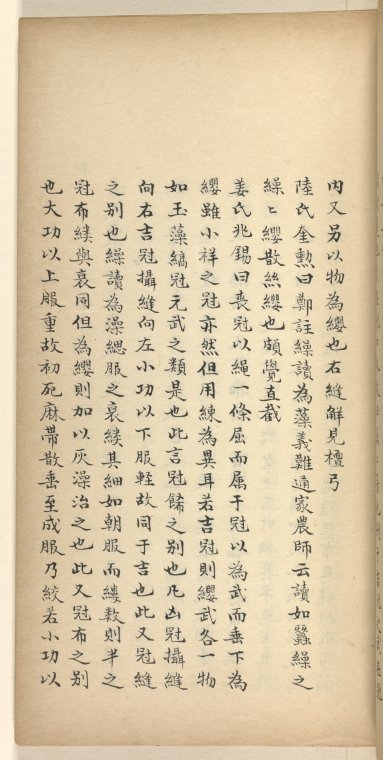 內又另以物為纓也右縫解見檀弓
陸氏奎勲曰鄭註繰讀為藻義難通家農師云讀如蠶繰之
繰〻纓散絲纓也頗覺直截
姜氏兆錫曰喪冠以繩一條屈而属于冠以為武而垂下為
纓雖小祥之冠亦然但用練為異耳若吉冠則纓武各一物
如玉藻縞冠元武之類是也此言冠餙之别也凢凶冠攝縫
向右吉冠攝縫向左小功以下服輕故同于吉也此又冠縫
之别也繰讀為澡緦服之衰縷其細如朝服而縷数則半之
冠布縷與衰同但為纓則加以灰澡治之也此又冠布之别
也大功以上服重故初死麻帶散垂至成服乃絞若小功以